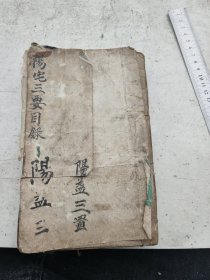 陽宅三要目録
陽益三
陽益三置